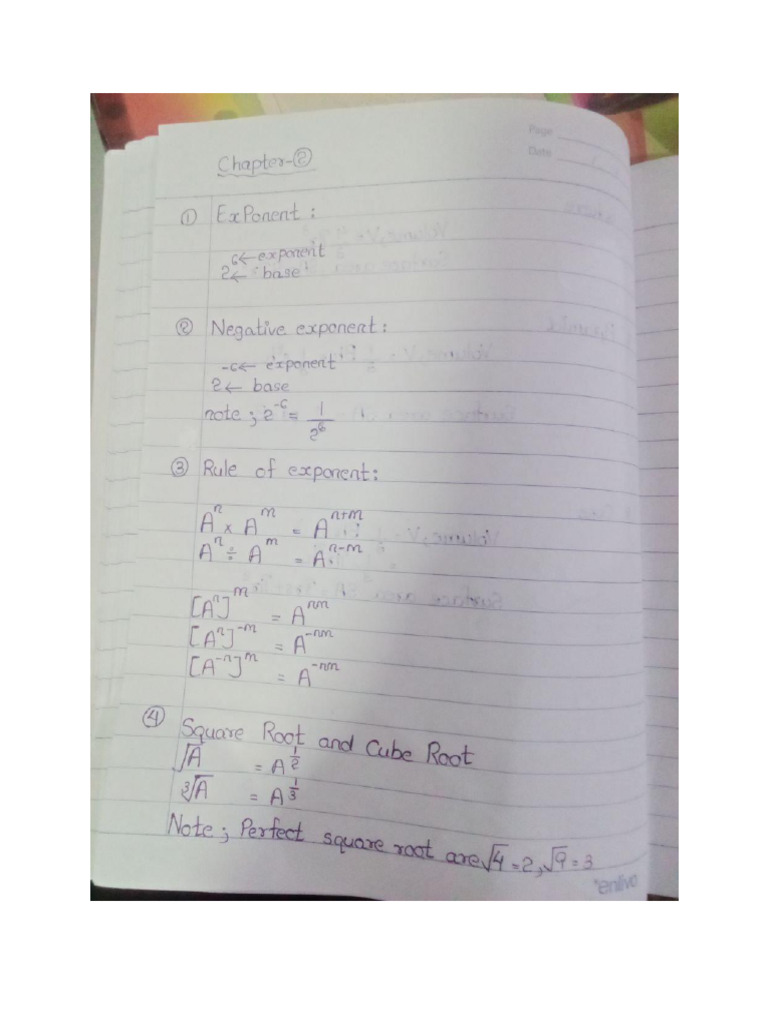 Page
Date
Chapter-②
① ExPonent :
6 ← exponent
2 ← base
② Negative exponent :
-6 ← exponent
2 ← base
note ; 2⁻⁶ = 1/2⁶
③ Rule of exponent :
Aⁿ × Aᵐ = Aⁿ⁺ᵐ
Aⁿ ÷ Aᵐ = Aⁿ⁻ᵐ
[Aⁿ]ᵐ = Aⁿᵐ
[Aⁿ]⁻ᵐ = A⁻ⁿᵐ
[A⁻ⁿ]ᵐ = A⁻ⁿᵐ
④ Square Root and Cube Root
√A = A^(1/2)
∛A = A^(1/3)
Note ; Perfect square root are √4 = 2, √9 = 3
enlivo